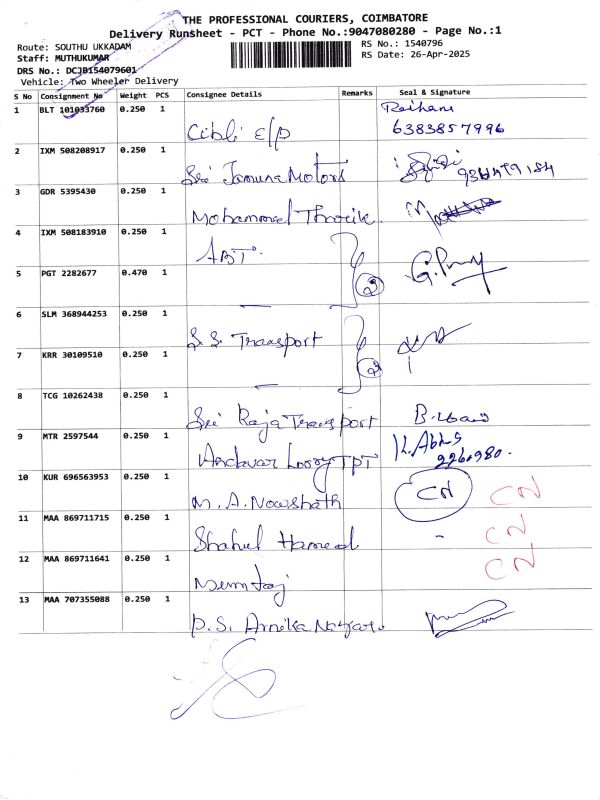 THE PROFESSIONAL COURIERS, COIMBATORE
Delivery Runsheet - PCT - Phone No.:9047080280 - Page No.:1
Route: SOUTHU UKKADAM
RS No.: 1540796
Staff: MUTHUKUMAR
RS Date: 26-Apr-2025
DRS No.: DCJB154079601
Vehicle: Two Wheeler Delivery
S No Consignment No Weight PCS Consignee Details Remarks Seal & Signature
1 BLT 101033760 0.250 1 Cibli E/P Reihana 6383857996
2 IXM 508208917 0.250 1 Sri Jamuna Motors
3 GDR 5395430 0.250 1 Mohammed Thoufik
4 IXM 508183910 0.250 1 ABT
5 PGT 2282677 0.470 1 — 2
6 SLM 368944253 0.250 1 S.S. Transport
7 KRR 30109510 0.250 1 — 2
8 TCG 10262438 0.250 1 Sri Raja Transport
9 MTR 2597544 0.250 1 Andavar Lorry TPT K. Abbas 2260980.
10 KUR 696563953 0.250 1 M. A. Nowshath CN CN
11 MAA 869711715 0.250 1 Shahul Hameed - CN
12 MAA 869711641 0.250 1 Mumtaj CN
13 MAA 707355088 0.250 1 P.S.